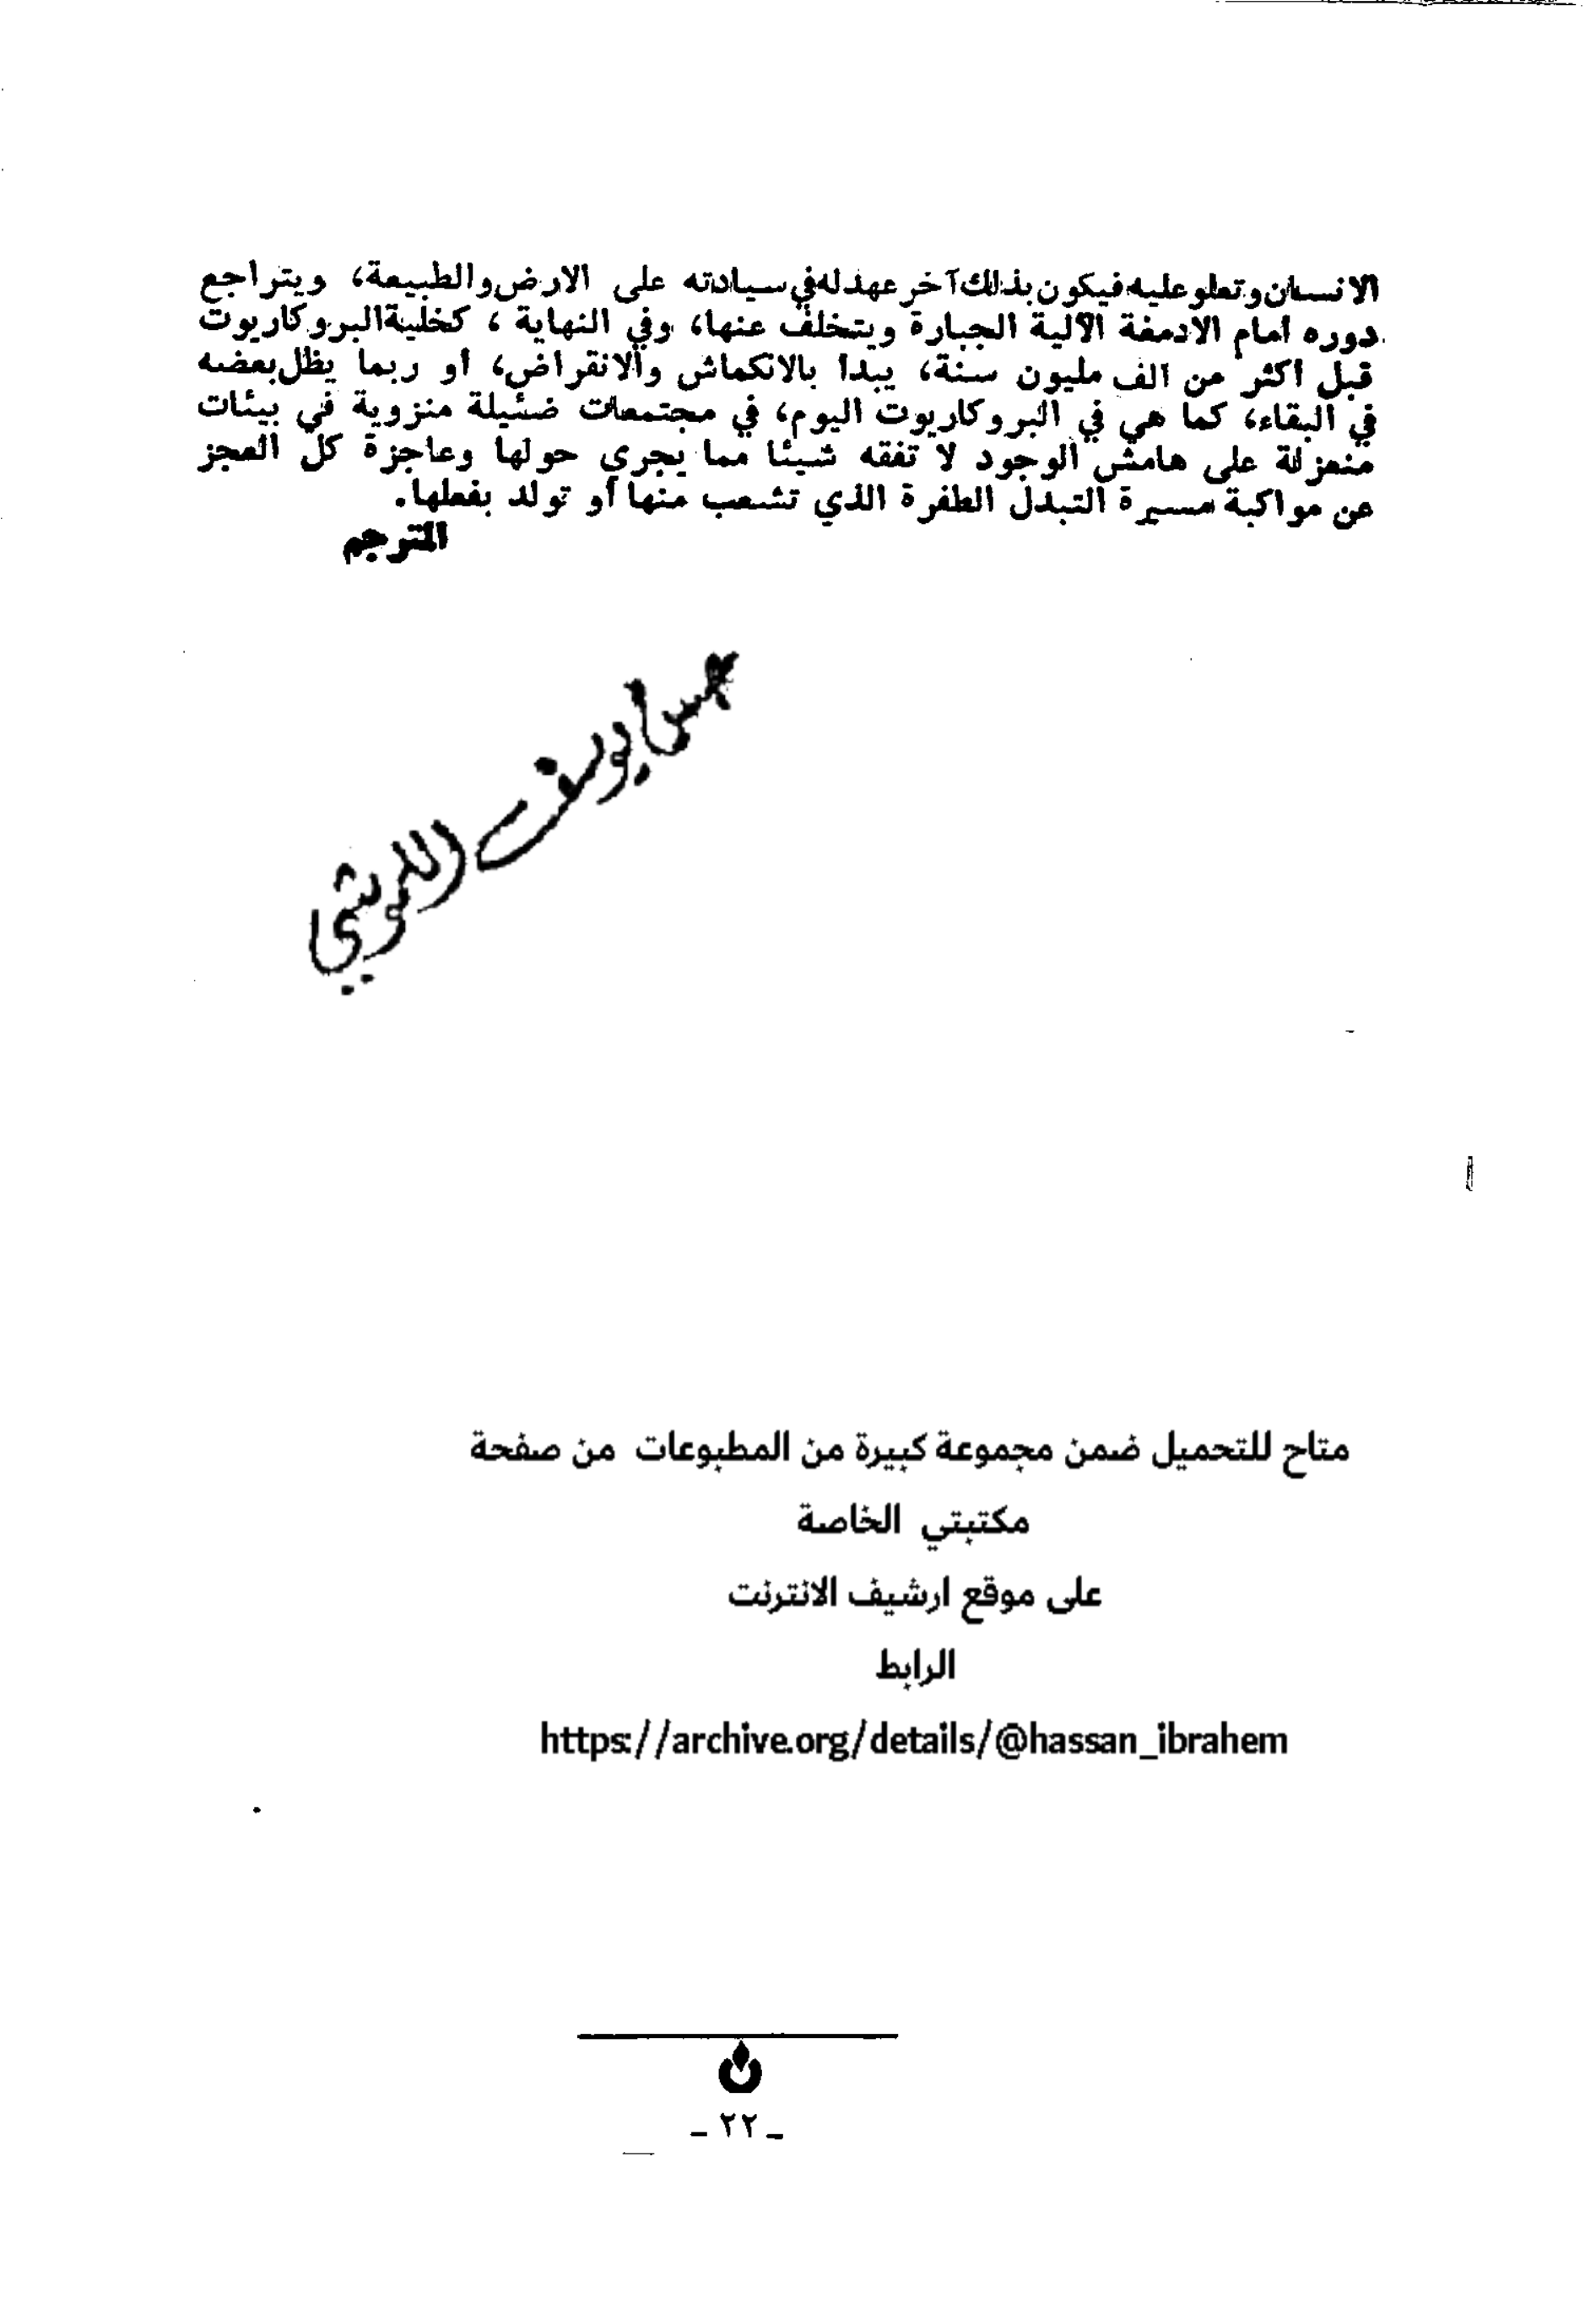 الانسان وتعلو عليه فيكون بذلك آخر عهد له في سيادته على الارض والطبيعة، ويتراجع
دوره امام الادمغة الآلية الجبارة ويتخلف عنها، وفي النهاية ، كخلية البروكاريوت
قبل اكثر من الف مليون سنة، يبدا بالانكماش والانقراض، او ربما يظل بعضه
في البقاء، كما هي في البروكاريوت اليوم، في مجتمعات ضئيلة منزوية في بيئات
منعزلة على هامش الوجود لا تفقه شيئا مما يجري حولها وعاجزة كل العجز
عن مواكبة مسيرة التبدل الطفرة الذي تشعب منها أو تولد بفعلها.
المترجم
يوسف
متاح للتحميل ضمن مجموعة كبيرة من المطبوعات من صفحة
مكتبتي الخاصة
على موقع ارشيف الانترنت
الرابط
https://archive.org/details/@hassan_ibrahem
- ٢٢ -